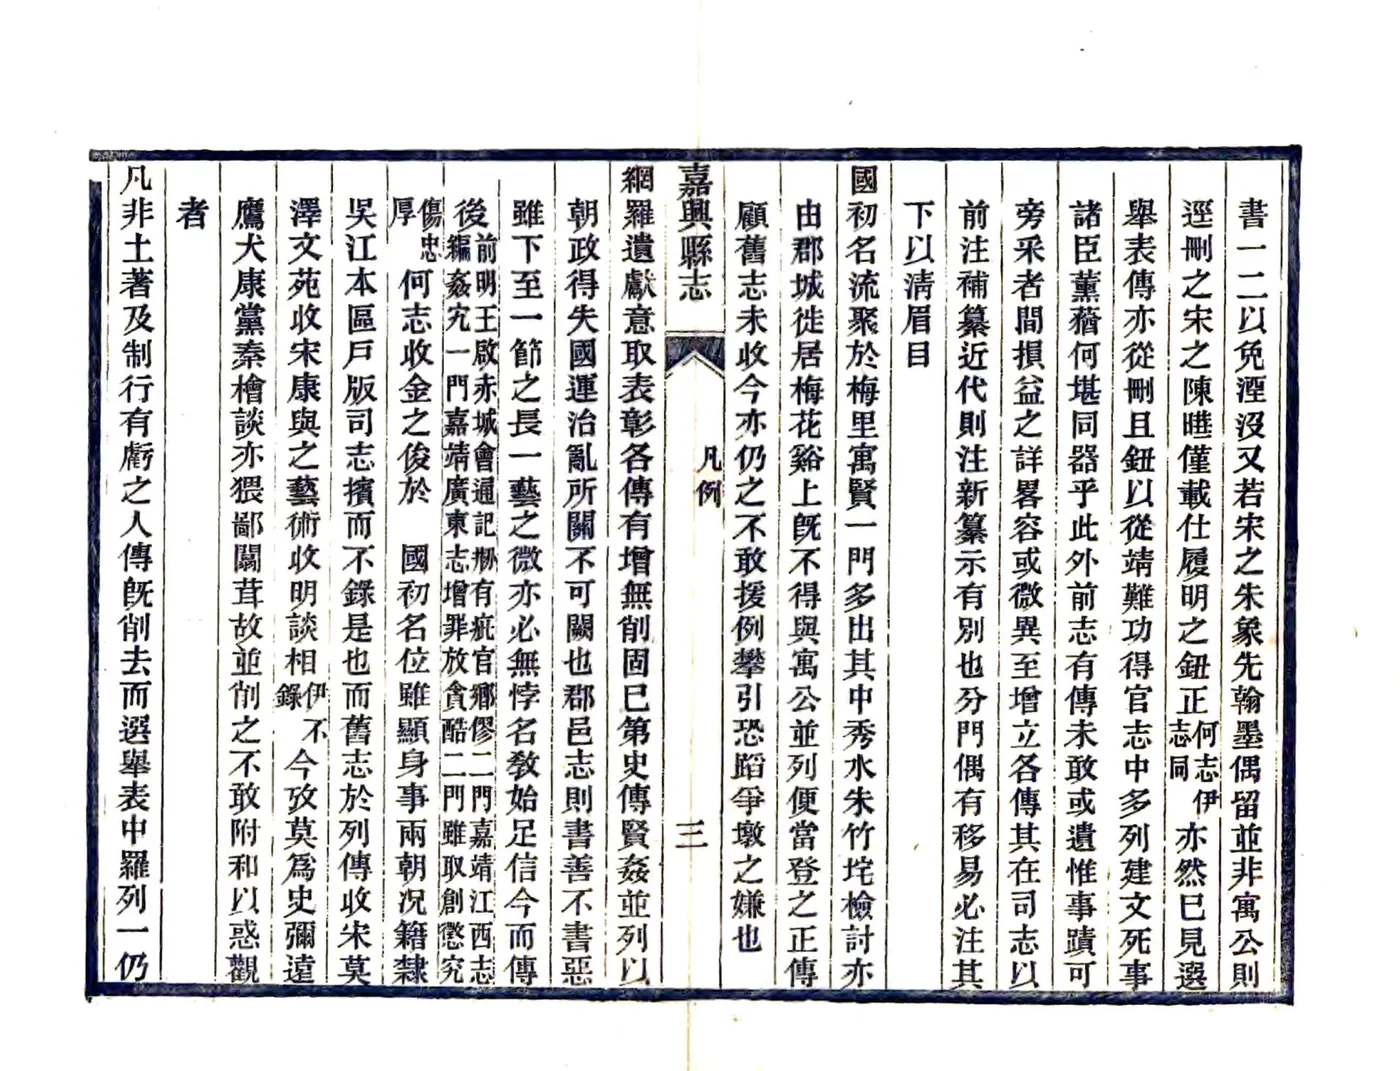 書一二以免湮沒又若宋之朱象先翰墨偶留並非寓公則
逕刪之宋之陳曄僅載仕履明之鈕正何志伊志同亦然已見選
舉表傳亦從刪且鈕以從靖難功得官志中多列建文死事
諸臣薰蕕何堪同器乎此外前志有傳未敢或遺惟事蹟可
旁采者間損益之詳畧容或微異至增立各傳其在司志以
前注補纂近代則注新纂示有別也分門偶有移易必注其
下以淸眉目
國初名流聚於梅里寓賢一門多出其中秀水朱竹垞檢討亦
由郡城徙居梅花谿上旣不得與寓公並列便當登之正傳
顧舊志未收今亦仍之不敢援例攀引恐蹈爭墩之嫌也
嘉興縣志
凡例
三
網羅遺獻意取表彰各傳有增無削固已第史傳賢姦並列以
朝政得失國運治亂所關不可闕也郡邑志則書善不書惡
雖下至一節之長一藝之微亦必無悖名敎始足信今而傳
後前明王啟赤城會通記刱有疵官鄉僇二門嘉靖江西志續編姦宄一門嘉靖廣東志增罪放貪酷二門雖取創懲究
傷忠厚何志收金之俊於 國初名位雖顯身事兩朝况籍隸
吳江本區戸版司志擯而不錄是也而舊志於列傳收宋莫
澤文苑收宋康與之藝術收明談相伊不錄今攷莫爲史彌遠
鷹犬康黨秦檜談亦猥鄙闒茸故並削之不敢附和以惑觀
者
凡非土著及制行有虧之人傳旣削去而選舉表中羅列一仍